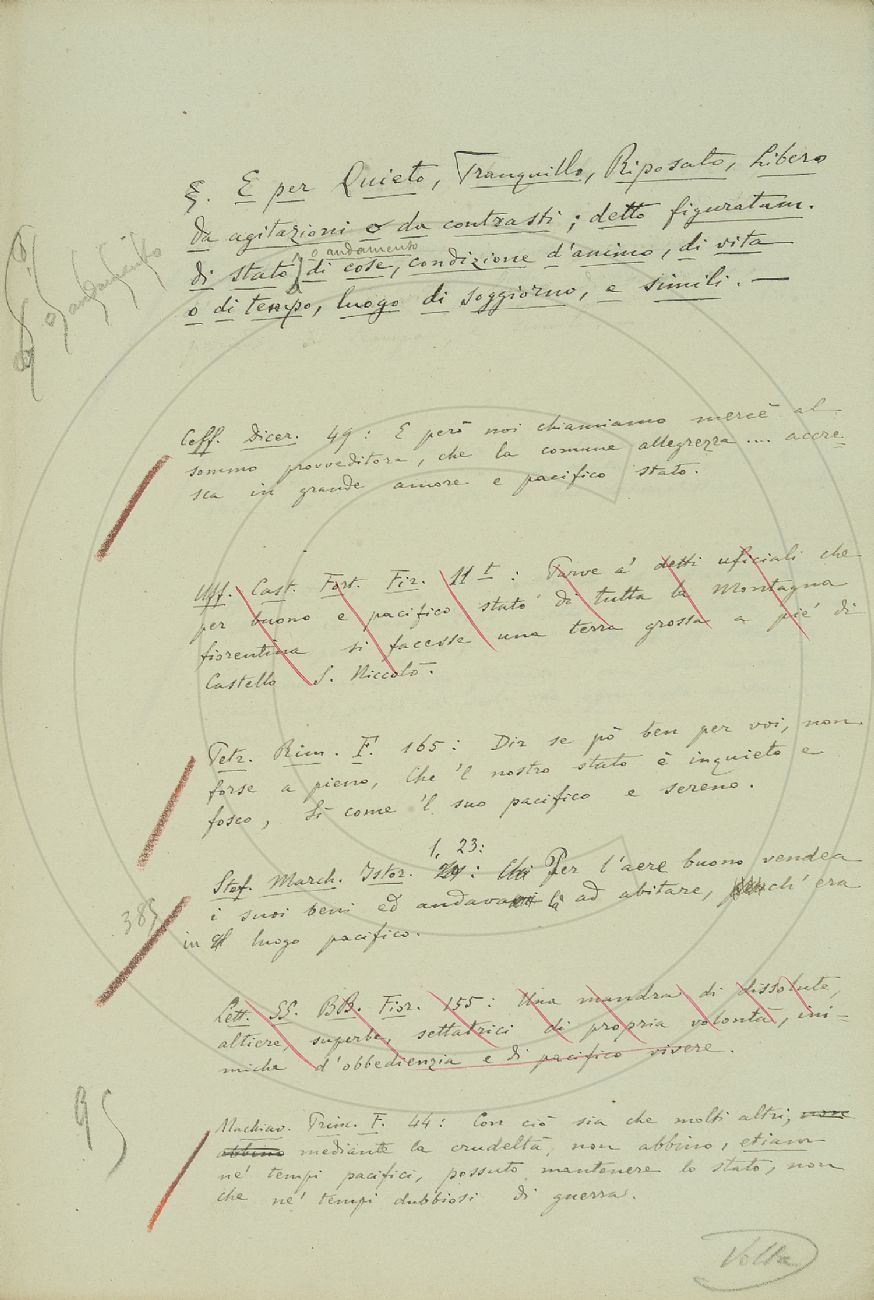 §. E per Quieto, Tranquillo, Riposato, Libero
da agitazioni o da contrasti; detto figuratam.
o andamento
di stato di cose, condizione d'animo, di vita
o andamento
o di tempo, luogo di soggiorno, e simili. —
Ceff. Dicer. 49: E però noi chiamiamo mercè al
sommo provveditore, che la comune allegrezza .... accre-
sca in grande amore e pacifico stato.
Uff. Cast. Fort. Fir. 11 t: Parve a' detti uficiali che
per buono e pacifico stato di tutta la Montagna
fiorentina si facesse una terra grossa a piè di
Castello S. Niccolò.
Petr. Rim. F. 165: Dir se pò ben per voi, non
forse a pieno, Che 'l nostro stato è inquieto e
fosco, Sì come 'l suo pacifico e sereno.
1, 23:
Stef. March. Istor. : Per l'aere buono vendea
i suoi beni ed andava là ad abitare, ch'era
385
in luogo pacifico.
Lett. SS. BB. Fior. 155: Una mandra di dissolute,
altiere, superbe, settatrici di propria volontà, ini-
miche d'obbedienzia e di pacifico vivere.
95
Machiav. Princ. F. 44: Con ciò sia che molti altri, non
abbino mediante la crudeltà, non abbino, etiam
ne' tempi pacifici, possuto mantenere lo stato, non
che ne' tempi dubbiosi di guerra.
Volta